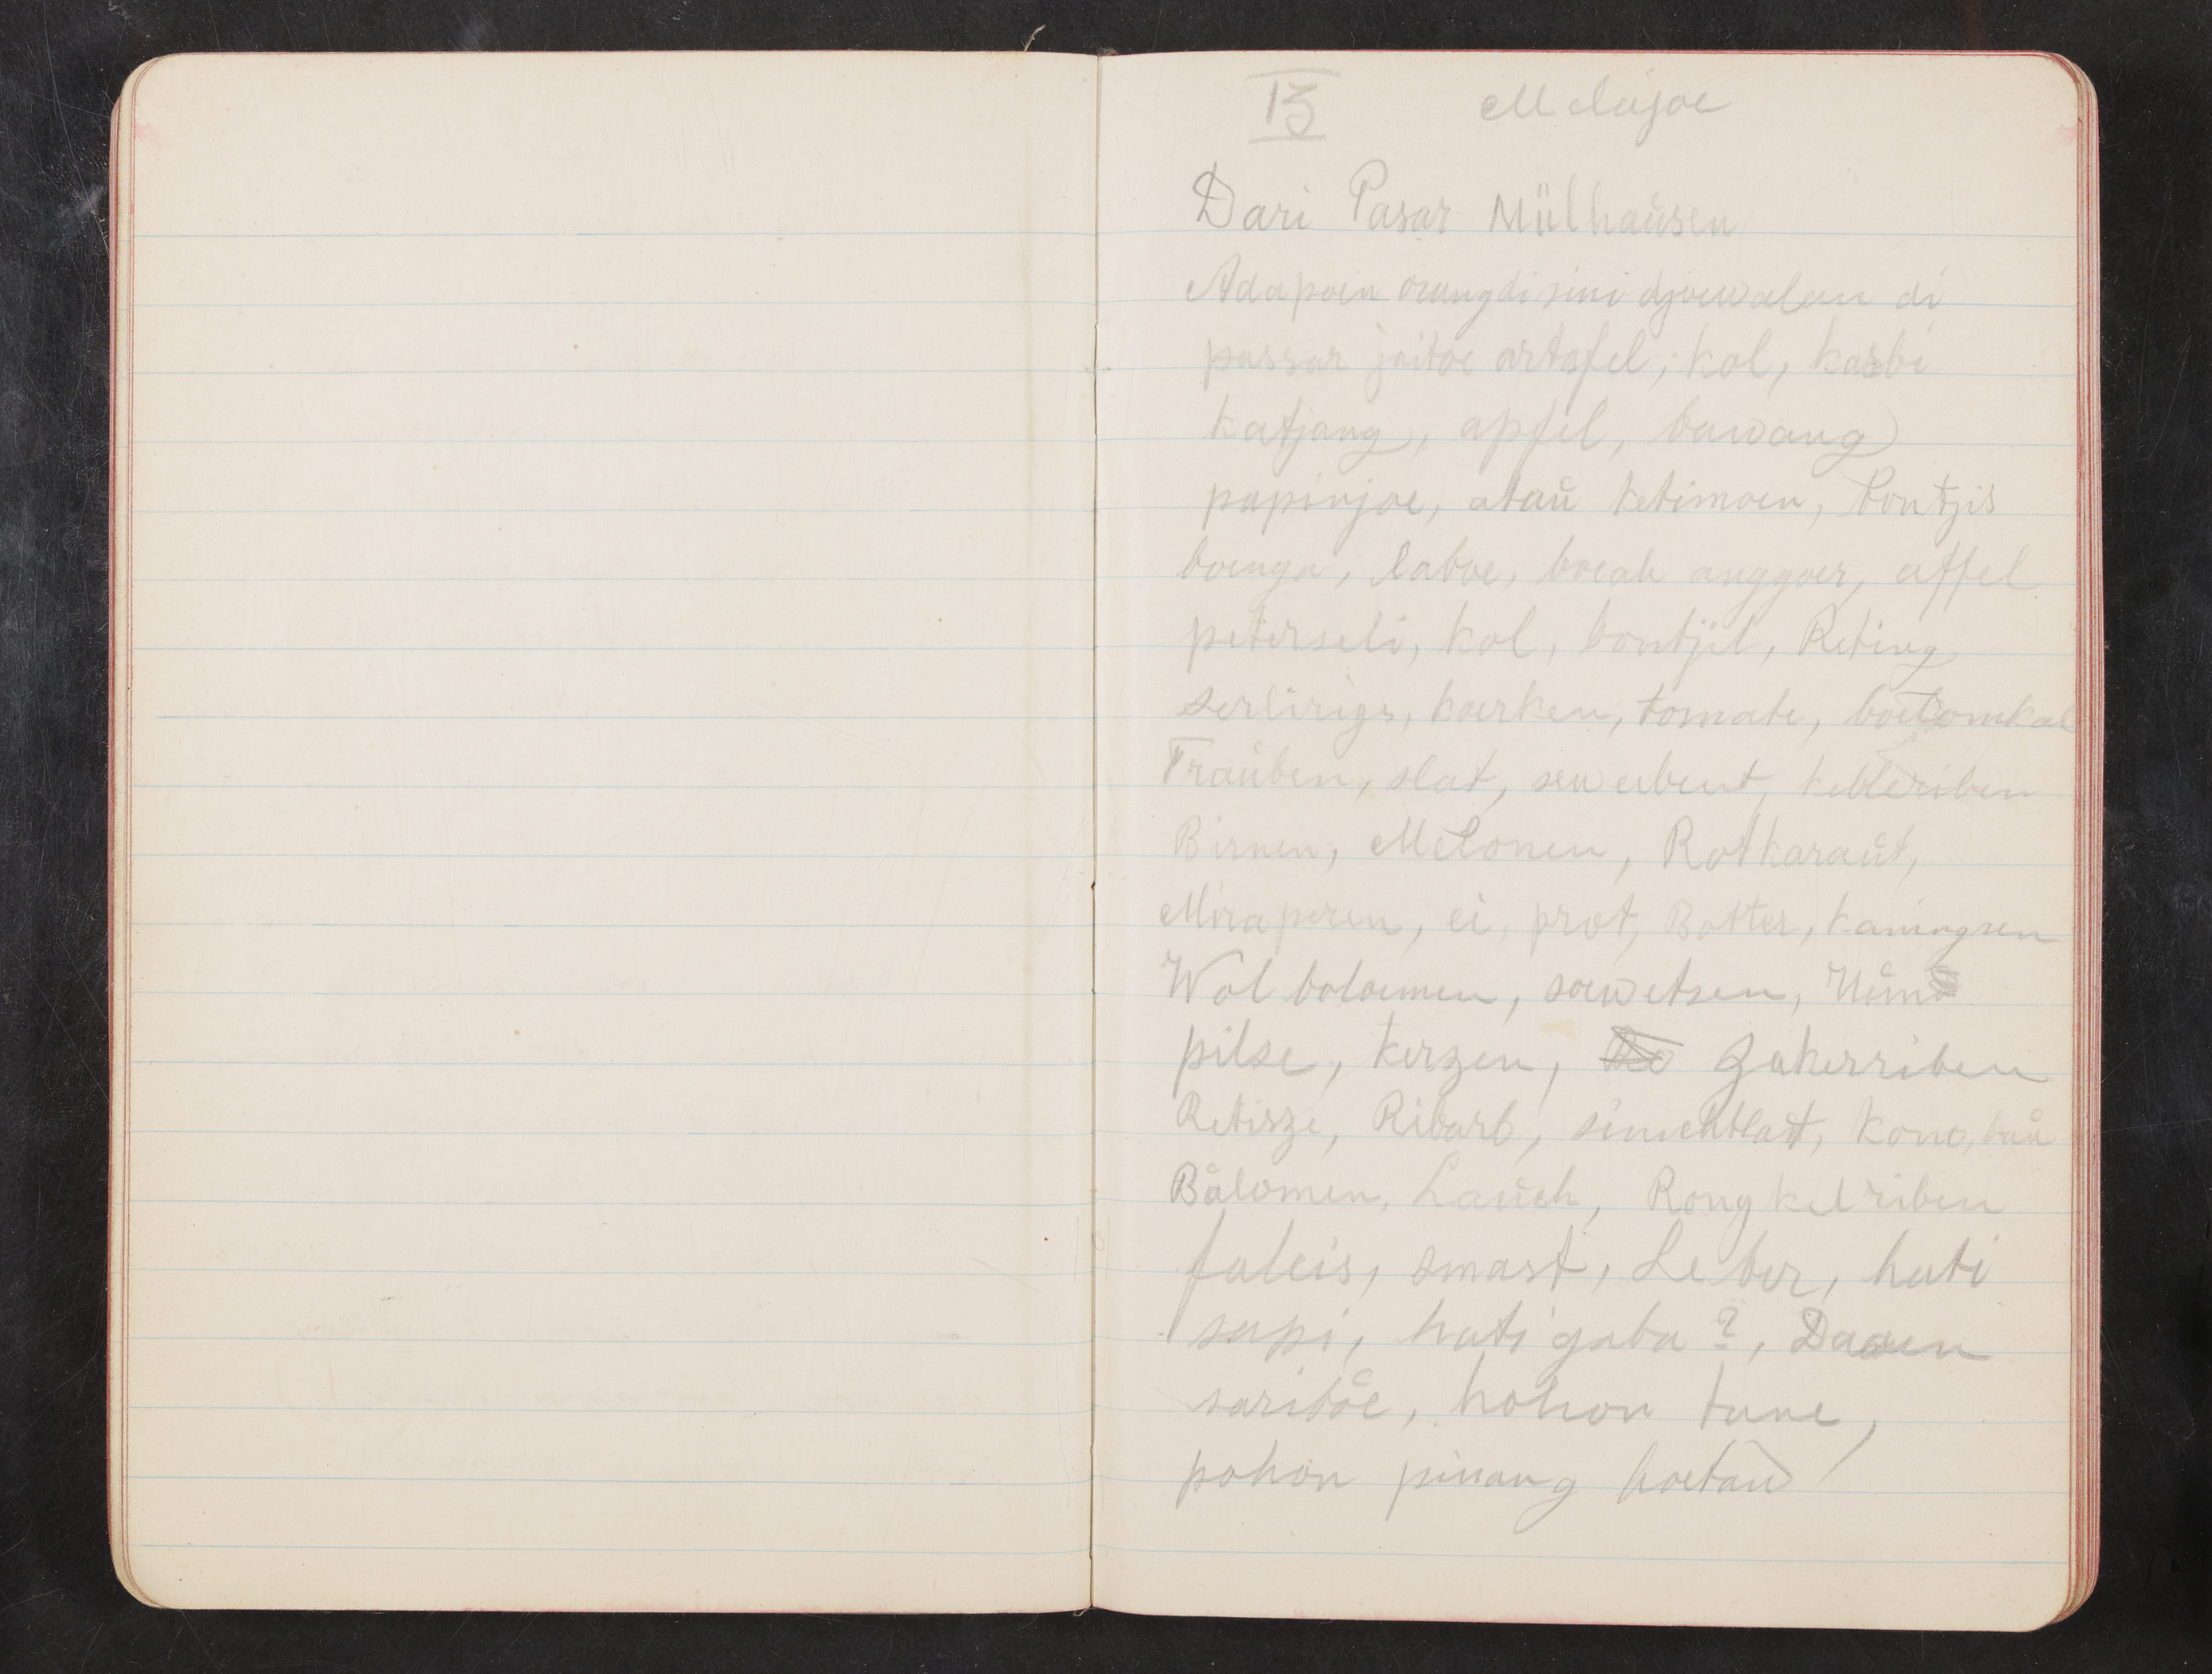 13 Melajoe
Dari Pasar Mülhaůsen
Adapoen orang di sini djoewalan di
passar jaitoe artofel, kol, karbi
katjang, apfel, bawang
papinjoe, ataů ketimoen, bontjis
boenga, laboe, boeah anggoer, affel
peterseli, kol, bontjil, Reting
serlirigs, koerken, tomate,
Traůben, slat,
Birnen, Melonen, Rotkaraůt,
Miraperen, ei, prot, Botter, kaningsen
Wol boloemen, soewetsen,
pilse, kerzen, Zakerriben
Retisze, Ribarb,
Bålomen, Laůch, Rongkelriben
faleis, smast, Leber, hati
sapi, hati gaba?, Daoen
saritoe, hohon tane,
pohon pinang hoetan